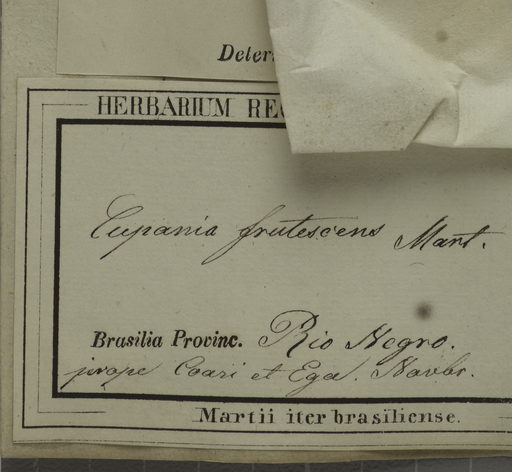 Deter
HERBARIUM REG
Cupania frutescens Mart.
Brasilia Provinc. Rio Negro.
prope Coari et Ega. Novbr.
Martii iter brasiliense.